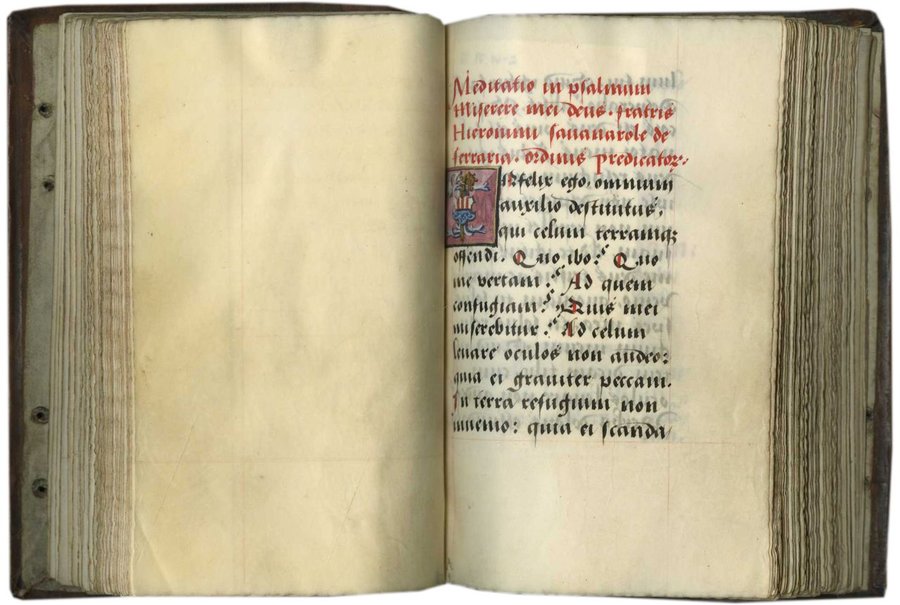 Meditatio in psalmum
Miserere mei deus. fratris
Hieronimi sauanarole de
ferraria. ordinis predicatorꝝ.
Infelix ego. omnium
auxilio destitutus,
qui celum terramqꝫ
offendi. Quo ibo? Quo
me vertam? Ad quem
confugiam? Quis mei
miserebitur? Ad celum
leuare oculos non audeo:
quia ei grauiter peccaui.
In terra refugium non
inuenio: quia ei scanda